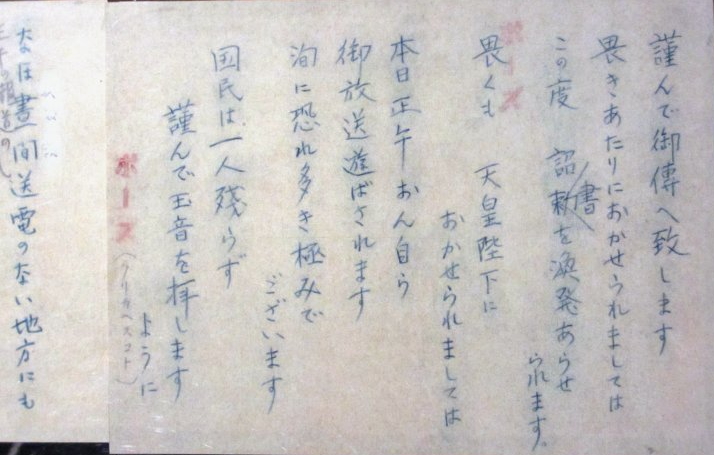 謹んで御傳へ致します
畏きあたりにおかせられましては
この度 詔勅を渙発あらせ
書
られます。
ポーズ
畏くも 天皇陛下に
おかせられましては
本日正午おん自ら
御放送遊ばされます
洵に恐れ多き極みで
ございます
国民は一人残らず
謹んで玉音を拝します
ように
ポーズ
(クリカヘスコト)
なほ晝間送電のない地方にも